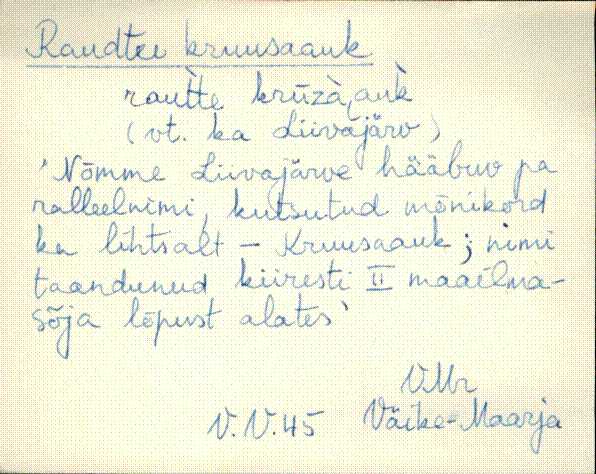 Raudtee kruusaauk
raùtte krūzà,auk̀
(vt. ka Liivajärv)
'Nõmme Liivajärve hääbuv pa
ralleelnimi, kutsutud mõnikord
ka lihtsalt - Kruusaauk; nimi
taandunud kiiresti II maailma-
sõja lõpust alates'
VMr
V.V.45 Väike-Maarja